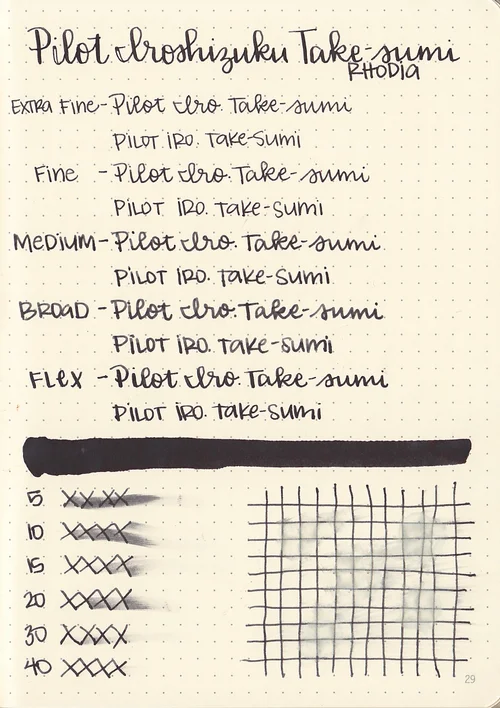 Pilot Iroshizuku Take-sumi
RHODIA
EXTRA FINE - Pilot Iro. Take-sumi
PILOT IRO. TAKE-SUMI
FINE - Pilot Iro. Take-sumi
PILOT IRO. TAKE-SUMI
MEDIUM - Pilot Iro. Take-sumi
PILOT IRO. TAKE-SUMI
BROAD - Pilot Iro. Take-sumi
PILOT IRO. TAKE-SUMI
FLEX - Pilot Iro. Take-sumi
PILOT IRO. TAKE-SUMI
5 XXXX
10 XXXX
15 XXXX
20 XXXX
30 XXXX
40 XXXX
29